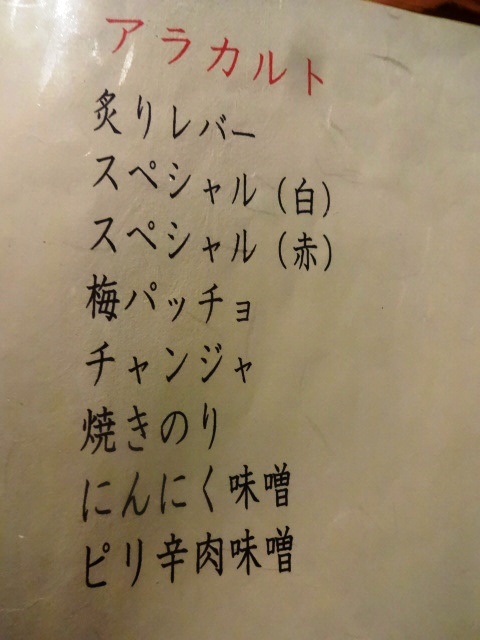 アラカルト
炙りレバー
スペシャル(白)
スペシャル(赤)
梅パッチョ
チャンジャ
焼きのり
にんにく味噌
ピリ辛肉味噌